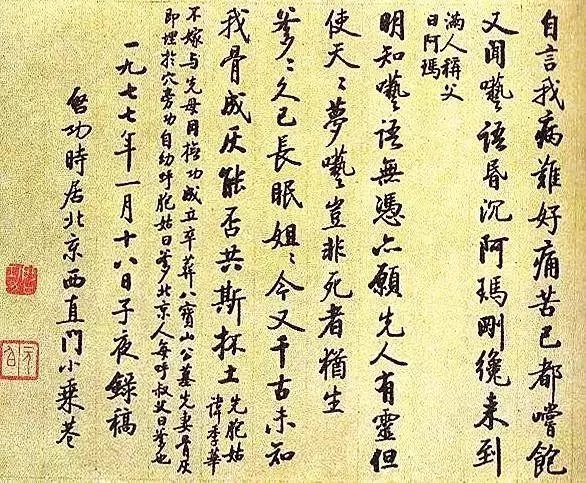 自言我病難好痛苦已都嚐飽
又聞囈語昏沉阿瑪剛纔來到
滿人稱父
曰阿瑪
明知囈語無憑亦願先人有靈但
使天〻夢囈豈非死者猶生
爹〻久已長眠姐〻今又千古未知
我骨成灰能否共斯抔土
先胞姑
諱季華
不嫁與先母同撫功成立卒葬八寶山公墓先妻骨灰
即埋於穴旁功自幼呼胞姑曰爹北京人每呼叔父曰爹也
一九七七年一月十八日子夜錄稿
啓功時居北京西直門小乘巷